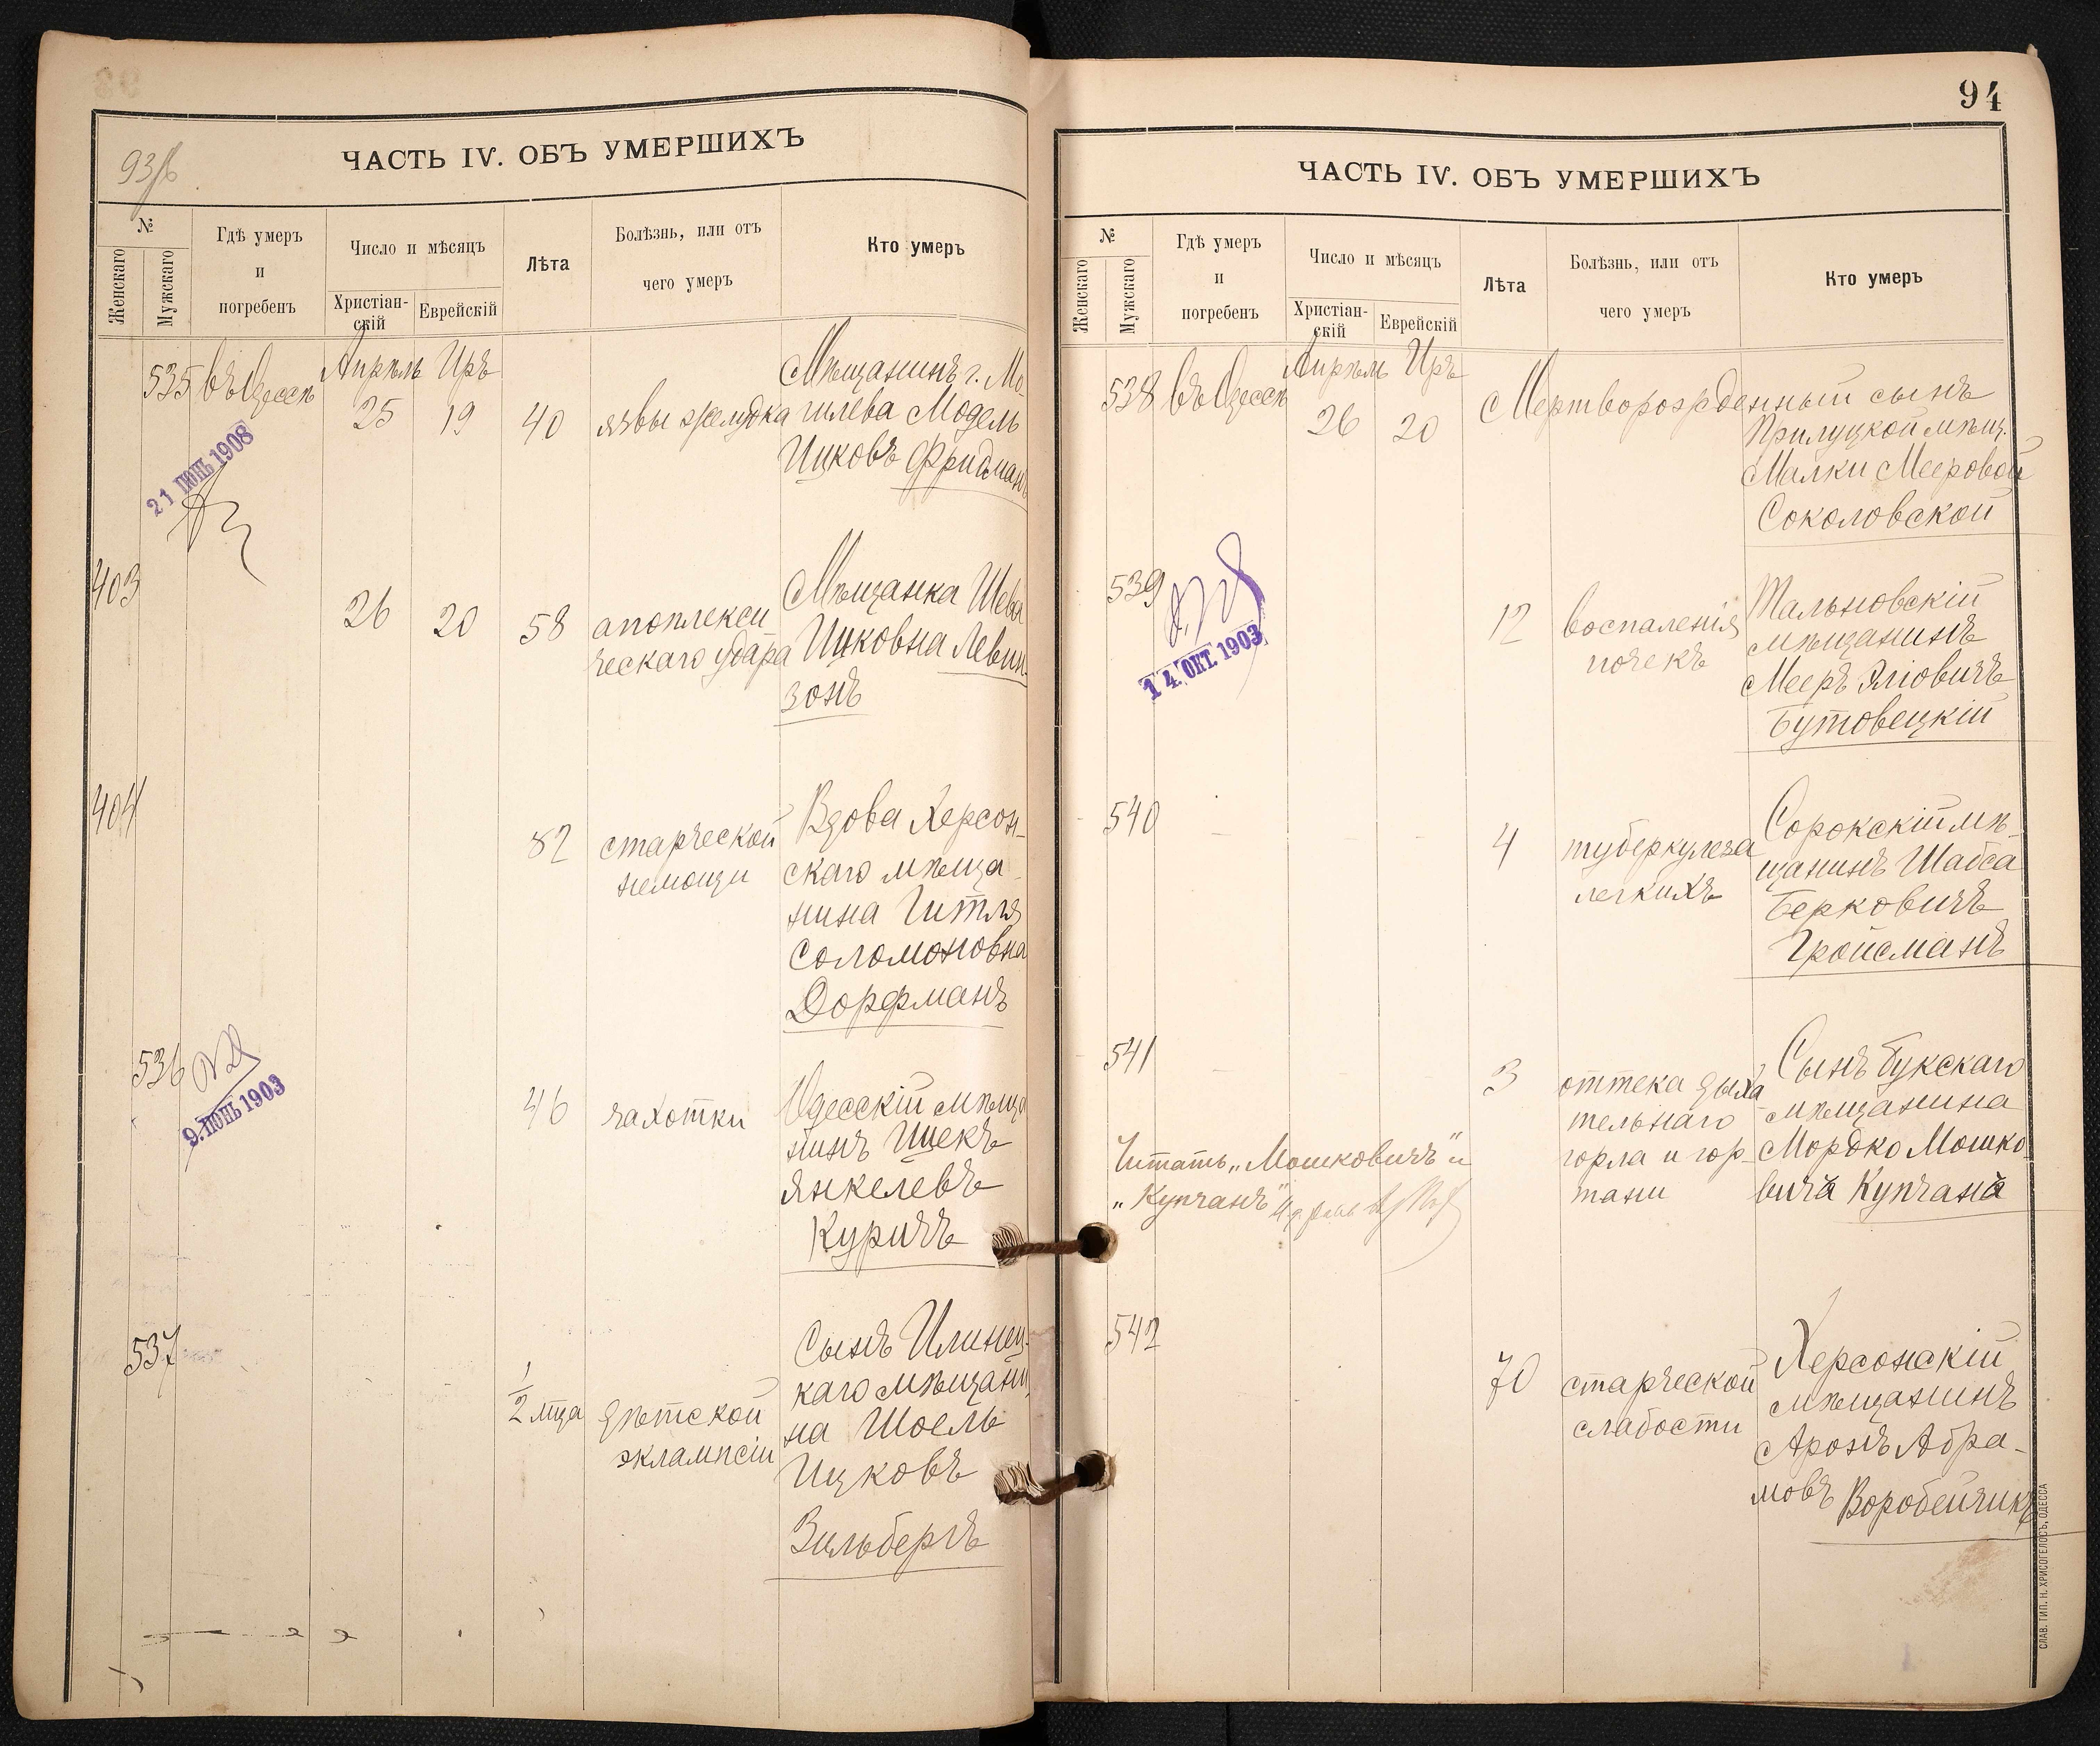 93/б
ЧАСТЬ IV. ОБЪ УМЕРШИХЪ
№
Женскаго
Мужскаго
Гдѣ умеръ
и
погребенъ
Число и мѣсяцъ
Христіан-
скій
Еврейскій
Лѣта
Болѣзнь, или отъ
чего умеръ
Кто умеръ
535 въ Одессѣ
Апрѣль Иръ
25 19 40
язвы желудка
Мѣщанинъ г. Мо-
гилева Модель
Ицковъ Фридманъ
21 ІЮНЬ 1908
403
26 20 58
апоплекси
ческаго удара
Мѣщанка Шева
Ицковна Левин-
зонъ
404
82
старческой
немощи
Вдова Херсон-
скаго мѣща-
нина Гитля
Соломоновна
Дорфманъ
536
9. ІЮНЬ 1903
46
чахотки
Одесскій мѣща
нинъ Ицекъ
Янкелевъ
Куричъ
537
1/2 мца
дѣтской
эклампсіи
Сынъ Илинец-
каго мѣщани
на Шоель
Ицковъ
Зильбергъ
94
ЧАСТЬ IV. ОБЪ УМЕРШИХЪ
№
Женскаго
Мужскаго
Гдѣ умеръ
и
погребенъ
Число и мѣсяцъ
Христіан-
скій
Еврейскій
Лѣта
Болѣзнь, или отъ
чего умеръ
Кто умеръ
538 въ Одессѣ
Апрѣль Иръ
26 20
Мертворожденный сынъ
Прилуцкой мѣщ.
Малки Мееровой
Соколовской
539
14 ОКТ. 1903
12
воспаленія
почекъ
Тальновскій
мѣщанинъ
Мееръ Эліовичъ
Бутовецкій
540
4
туберкулеза
легкихъ
Сорокскій мѣ-
щанинъ Шабса
Берковичъ
Гройсманъ
541
3
оттека дыха
тельнаго
горла и гор-
тани
Сынъ Букскаго
мѣщанина
Мордко Мошко-
вича Купчана
Читать „Мошковичъ" и
„Купчанъ"
542
70
старческой
слабости
Херсонскій
мѣщанинъ
Аронъ Абра-
мовъ Воробейчикъ
СЛАВ. ТИП. Н. ХРИСОГЕЛОСЪ, ОДЕССА